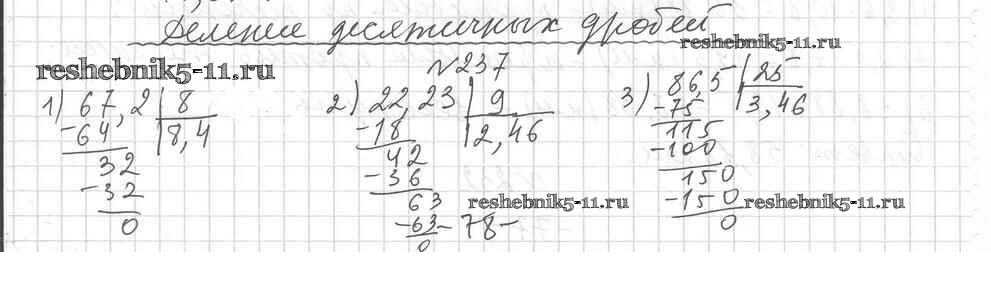 Деление десятичных дробей
reshebnik5-11.ru
reshebnik5-11.ru
№237
1) 67,2 | 8
-64 | 8,4
32
-32
0
2) 22,23 | 9
-18 | 2,46
42
-36
63
-63
0
3) 86,5 | 25
-75 | 3,46
115
-100
150
-150
0
reshebnik5-11.ru
reshebnik5-11.ru
-78-